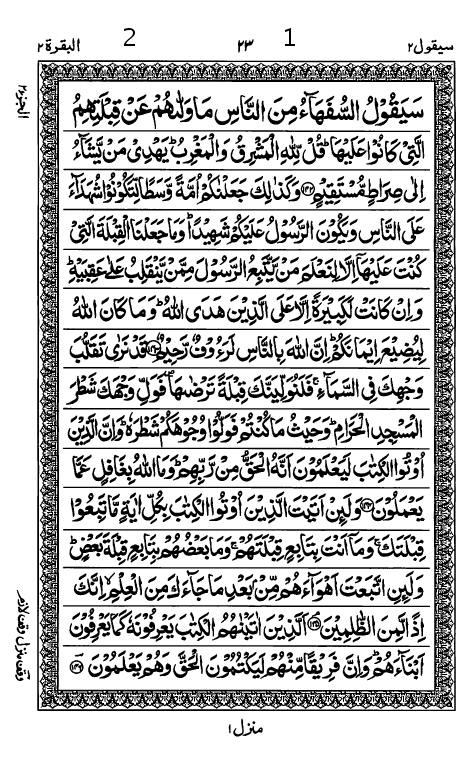 سیقول ۲ 1 ۲۳ 2 البقرة ۲
الجزء ۲
سَيَقُوْلُ السُّفَهَآءُ مِنَ النَّاسِ مَا وَلّٰىهُمْ عَنْ قِبْلَتِهِمُ
الَّتِيْ كَانُوْا عَلَيْهَا ؕ قُلْ لِّلّٰهِ الْمَشْرِقُ وَالْمَغْرِبُ ؕ يَهْدِيْ مَنْ يَّشَآءُ
اِلٰى صِرَاطٍ مُّسْتَقِيْمٍ ۝۱۴۲ وَكَذٰلِكَ جَعَلْنٰكُمْ اُمَّةً وَّسَطًا لِّتَكُوْنُوْا شُهَدَآءَ
عَلَى النَّاسِ وَيَكُوْنَ الرَّسُوْلُ عَلَيْكُمْ شَهِيْدًا ؕ وَمَا جَعَلْنَا الْقِبْلَةَ الَّتِيْ
كُنْتَ عَلَيْهَاۤ اِلَّا لِنَعْلَمَ مَنْ يَّتَّبِعُ الرَّسُوْلَ مِمَّنْ يَّنْقَلِبُ عَلٰى عَقِبَيْهِ ؕ
وَاِنْ كَانَتْ لَكَبِيْرَةً اِلَّا عَلَى الَّذِيْنَ هَدَى اللّٰهُ ؕ وَمَا كَانَ اللّٰهُ
لِيُضِيْعَ اِيْمَانَكُمْ ؕ اِنَّ اللّٰهَ بِالنَّاسِ لَرَءُوْفٌ رَّحِيْمٌ ۝۱۴۳ قَدْ نَرٰى تَقَلُّبَ
وَجْهِكَ فِي السَّمَآءِ ۚ فَلَنُوَلِّيَنَّكَ قِبْلَةً تَرْضٰىهَا ۪ فَوَلِّ وَجْهَكَ شَطْرَ
الْمَسْجِدِ الْحَرَامِ ؕ وَحَيْثُ مَا كُنْتُمْ فَوَلُّوْا وُجُوْهَكُمْ شَطْرَهٗ ؕ وَاِنَّ الَّذِيْنَ
اُوْتُوا الْكِتٰبَ لَيَعْلَمُوْنَ اَنَّهُ الْحَقُّ مِنْ رَّبِّهِمْ ؕ وَمَا اللّٰهُ بِغَافِلٍ عَمَّا
يَعْمَلُوْنَ ۝۱۴۴ وَلَئِنْ اَتَيْتَ الَّذِيْنَ اُوْتُوا الْكِتٰبَ بِكُلِّ اٰيَةٍ مَّا تَبِعُوْا
قِبْلَتَكَ ۚ وَمَاۤ اَنْتَ بِتَابِعٍ قِبْلَتَهُمْ ۚ وَمَا بَعْضُهُمْ بِتَابِعٍ قِبْلَةَ بَعْضٍ ؕ
وَلَئِنِ اتَّبَعْتَ اَهْوَآءَهُمْ مِّنْۢ بَعْدِ مَا جَآءَكَ مِنَ الْعِلْمِ ۙ اِنَّكَ
اِذًا لَّمِنَ الظّٰلِمِيْنَ ۝۱۴۵ اَلَّذِيْنَ اٰتَيْنٰهُمُ الْكِتٰبَ يَعْرِفُوْنَهٗ كَمَا يَعْرِفُوْنَ
اَبْنَآءَهُمْ ؕ وَاِنَّ فَرِيْقًا مِّنْهُمْ لَيَكْتُمُوْنَ الْحَقَّ وَهُمْ يَعْلَمُوْنَ ۝۱۴۶
وقف منزل وقف لازم
منزل ۱